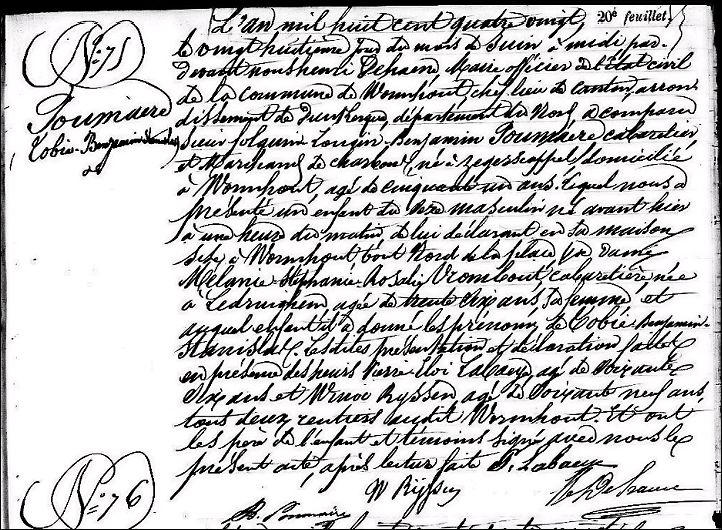 20e feuillet.
N° 75
Poumaere
Tobie-Benjamin-Stanislas
L'an mil huit cent quatre vingt,
le vingt huitième jour du mois de Juin à midi par
devant nous henri Dehaene Maire officier de l'état civil
de la commune de Wormhout, chef lieu de canton, arron
dissement de Dunkerque, département du Nord, a comparu
sieur folquin Longin Benjamin Poumaere cabaretier
et Marchand de charbons, né à Zegerscappel, domicilié
à Wormhout, agé de cinquante un ans. Lequel nous a
présenté un enfant du sexe masculin né avant hier
à une heure du matin de lui déclarant en sa maison
sise à Wormhout bort Nord de la place, & de dame
Mélanie-Stéphanie-Rosalie Vrombout, cabaretière née
à Ledringhem agée de trente six ans, sa femme et
auquel enfant il a donné les prénoms de Tobie-Benjamin-
Stanislas. Les dites présentation et déclaration faites
en présence des sieurs Pierre Eloi Labaeye agé de soixante
six ans et Winoc Ryssen agé de soixante neuf ans,
tous deux rentiers audit Wormhout. Et ont
les père de l'enfant et témoins signé avec nous le
présent acte, après lecture faite P. Labaeye
W Ryssen
DeHaene
B. Poumaere
N° 76